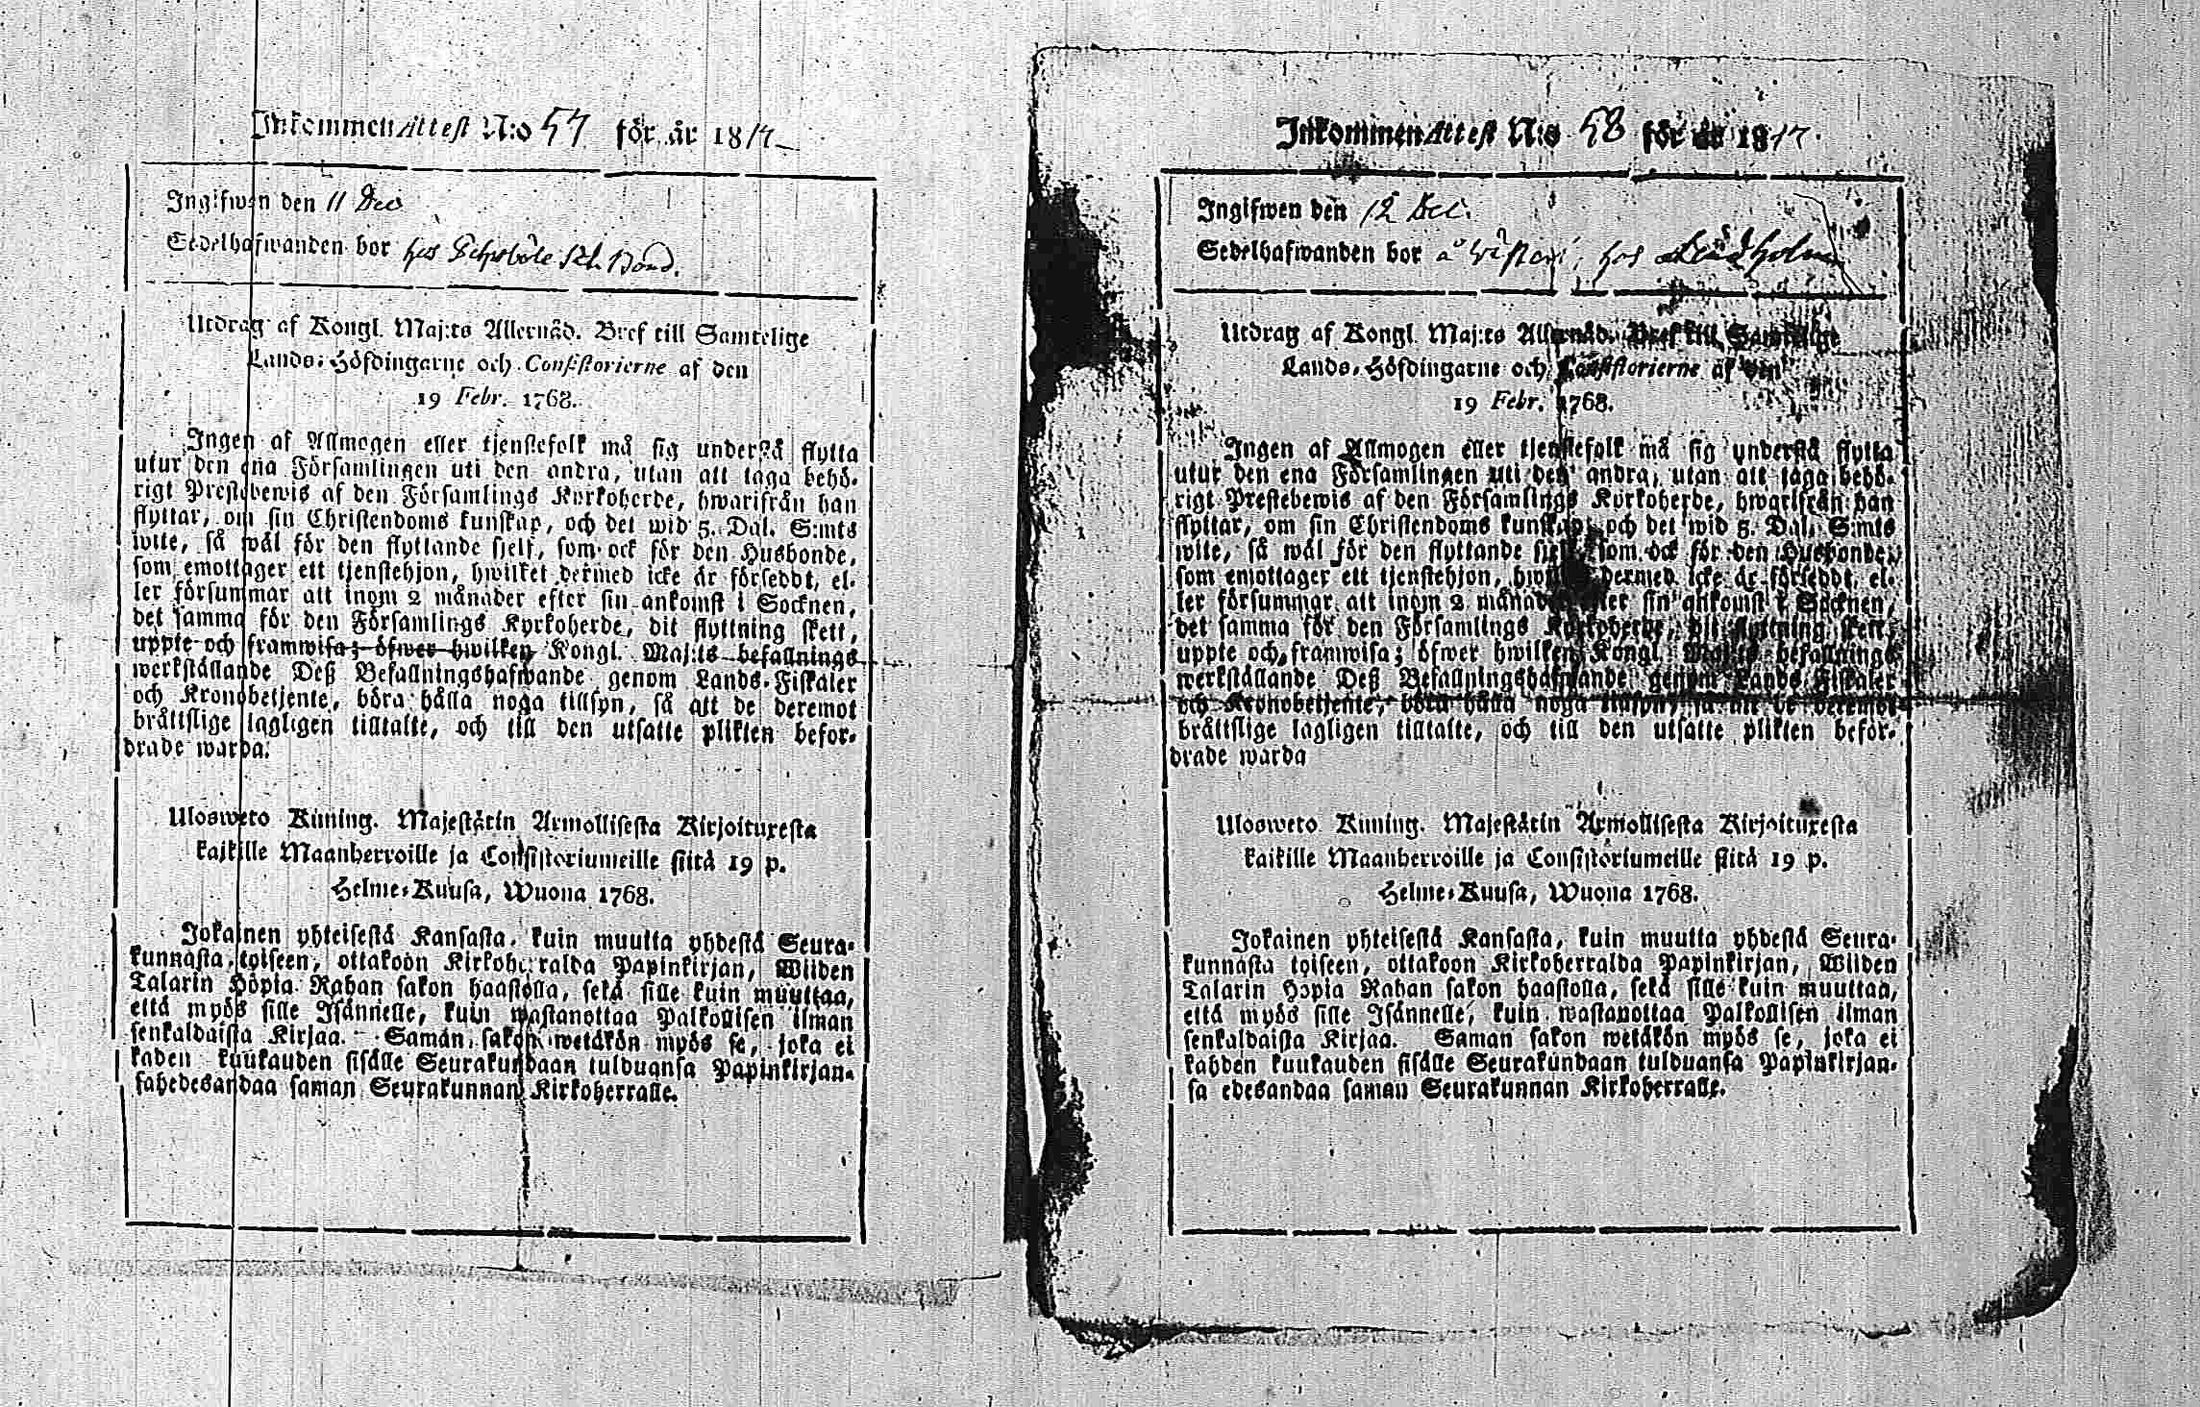 Inkommen Attest N:o 57 för år 1817
Ingifwen den 11 Dec
Sedelhafwanden bor hos
Utdrag af Kongl. Maj:ts Allernåd. Bref till Samtelige
Lands-Höfdingarne och Consistorierne af den
19 Febr. 1768.
Ingen af Allmogen eller tjenstefolk må sig understå flytta
utur den ena Församlingen uti den andra, utan att taga behö-
rigt Prestebewis af den Församlings Kyrkoherde, hwarifrån han
flyttar, om sin Christendoms kunskap, och det wid 5. Dal. S:mts
wite, så wäl för den flyttande sjelf, som ock för den Husbonde,
som emottager ett tjenstehjon, hwilket dermed icke är försedt, el-
ler försummar att inom 2 månader efter sin ankomst i Socknen,
det samma för den Församlings Kyrkoherde, dit flyttning skett,
uppte och framwisa; öfwer hwilken Kongl. Maj:ts befallnings
werkställande Deß Befallningshafwande genom Lands-Fiskaler
och Kronobetjente, böra hålla noga tillsyn, så att de deremot
bråttslige lagligen tilltalte, och till den utsatte plikten befor-
drade warda.
Ulosweto Kuning. Majestätin Armollisesta Kirjoituxesta
kaikille Maanherroille ja Consistoriumeille siitä 19 p.
Helme-Kuusa, Wuona 1768.
Jokainen yhteisestä Kansasta, kuin muutta yhdestä Seura-
kunnasta toiseen, ottakoon Kirkoherralda Papinkirjan, Wiiden
Talarin Hopia Rahan sakon haastolla, sekä sille kuin muuttaa,
että myös sille Isännelle, kuin wastanottaa Palkollisen ilman
senkaldaista Kirjaa. Saman sakon wetäkön myös se, joka ei
kaden kuukauden sisälle Seurakundaan tulduansa Papinkirjan-
sahedesandaa saman Seurakunnan Kirkoherralle.
Inkommen Attest N:o 58 för år 1817.
Ingifwen den 12 Dec.
Sedelhafwanden bor å hos
Utdrag af Kongl. Maj:ts Allernåd. Bref till Samtelige
Lands-Höfdingarne och Consistorierne af den
19 Febr. 1768.
Ingen af Allmogen eller tjenstefolk må sig understå flytta
utur den ena Församlingen uti den andra, utan att taga behö-
rigt Prestebewis af den Församlings Kyrkoherde, hwarifrån han
flyttar, om sin Christendoms kunskap, och det wid 5. Dal. S:mts
wite, så wäl för den flyttande sjelf, som ock för den Husbonde,
som emottager ett tjenstehjon, hwilket dermed icke är försedt, el-
ler försummar att inom 2 månader efter sin ankomst i Socknen,
det samma för den Församlings Kyrkoherde, dit flyttning skett,
uppte och framwisa; öfwer hwilken Kongl. Maj:ts befallnings
werkställande Deß Befallningshafwande genom Lands-Fiskaler
och Kronobetjente, böra hålla noga tillsyn, så att de deremot
bråttslige lagligen tilltalte, och till den utsatte plikten beför-
drade warda
Ulosweto Kuning. Majestätin Armollisesta Kirjoituxesta
kaikille Maanherroille ja Consistoriumeille siitä 19 p.
Helme-Kuusa, Wuona 1768.
Jokainen yhteisestä Kansasta, kuin muutta yhdestä Seura-
kunnasta toiseen, ottakoon Kirkoherralda Papinkirjan, Wiiden
Talarin Hopia Rahan sakon haastolla, sekä sille kuin muuttaa,
että myös sille Isännelle, kuin wastanottaa Palkollisen ilman
senkaldaista Kirjaa. Saman sakon wetäkön myös se, joka ei
kahden kuukauden sisälle Seurakundaan tulduansa Papinkirjan-
sa edesandaa saman Seurakunnan Kirkoherralle.